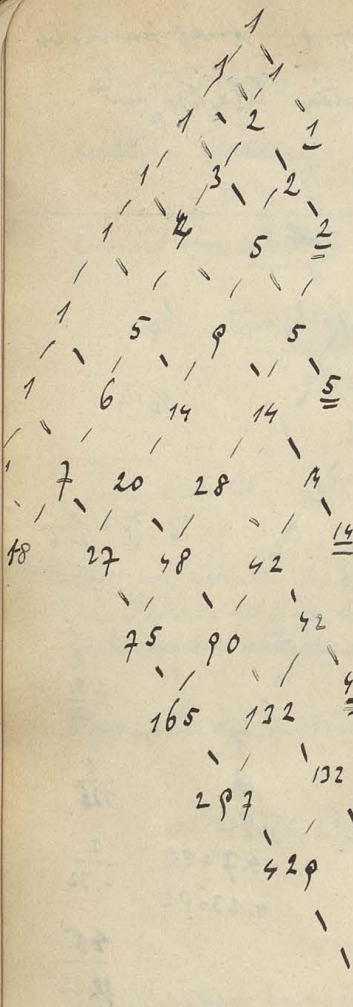 1
1 1
1 2 1
1 3 2
1 4 5 2
1 5 9 5
1 6 14 14 5
7 20 28 14
18 27 48 42 14
75 90 42
165 132
297 132
429